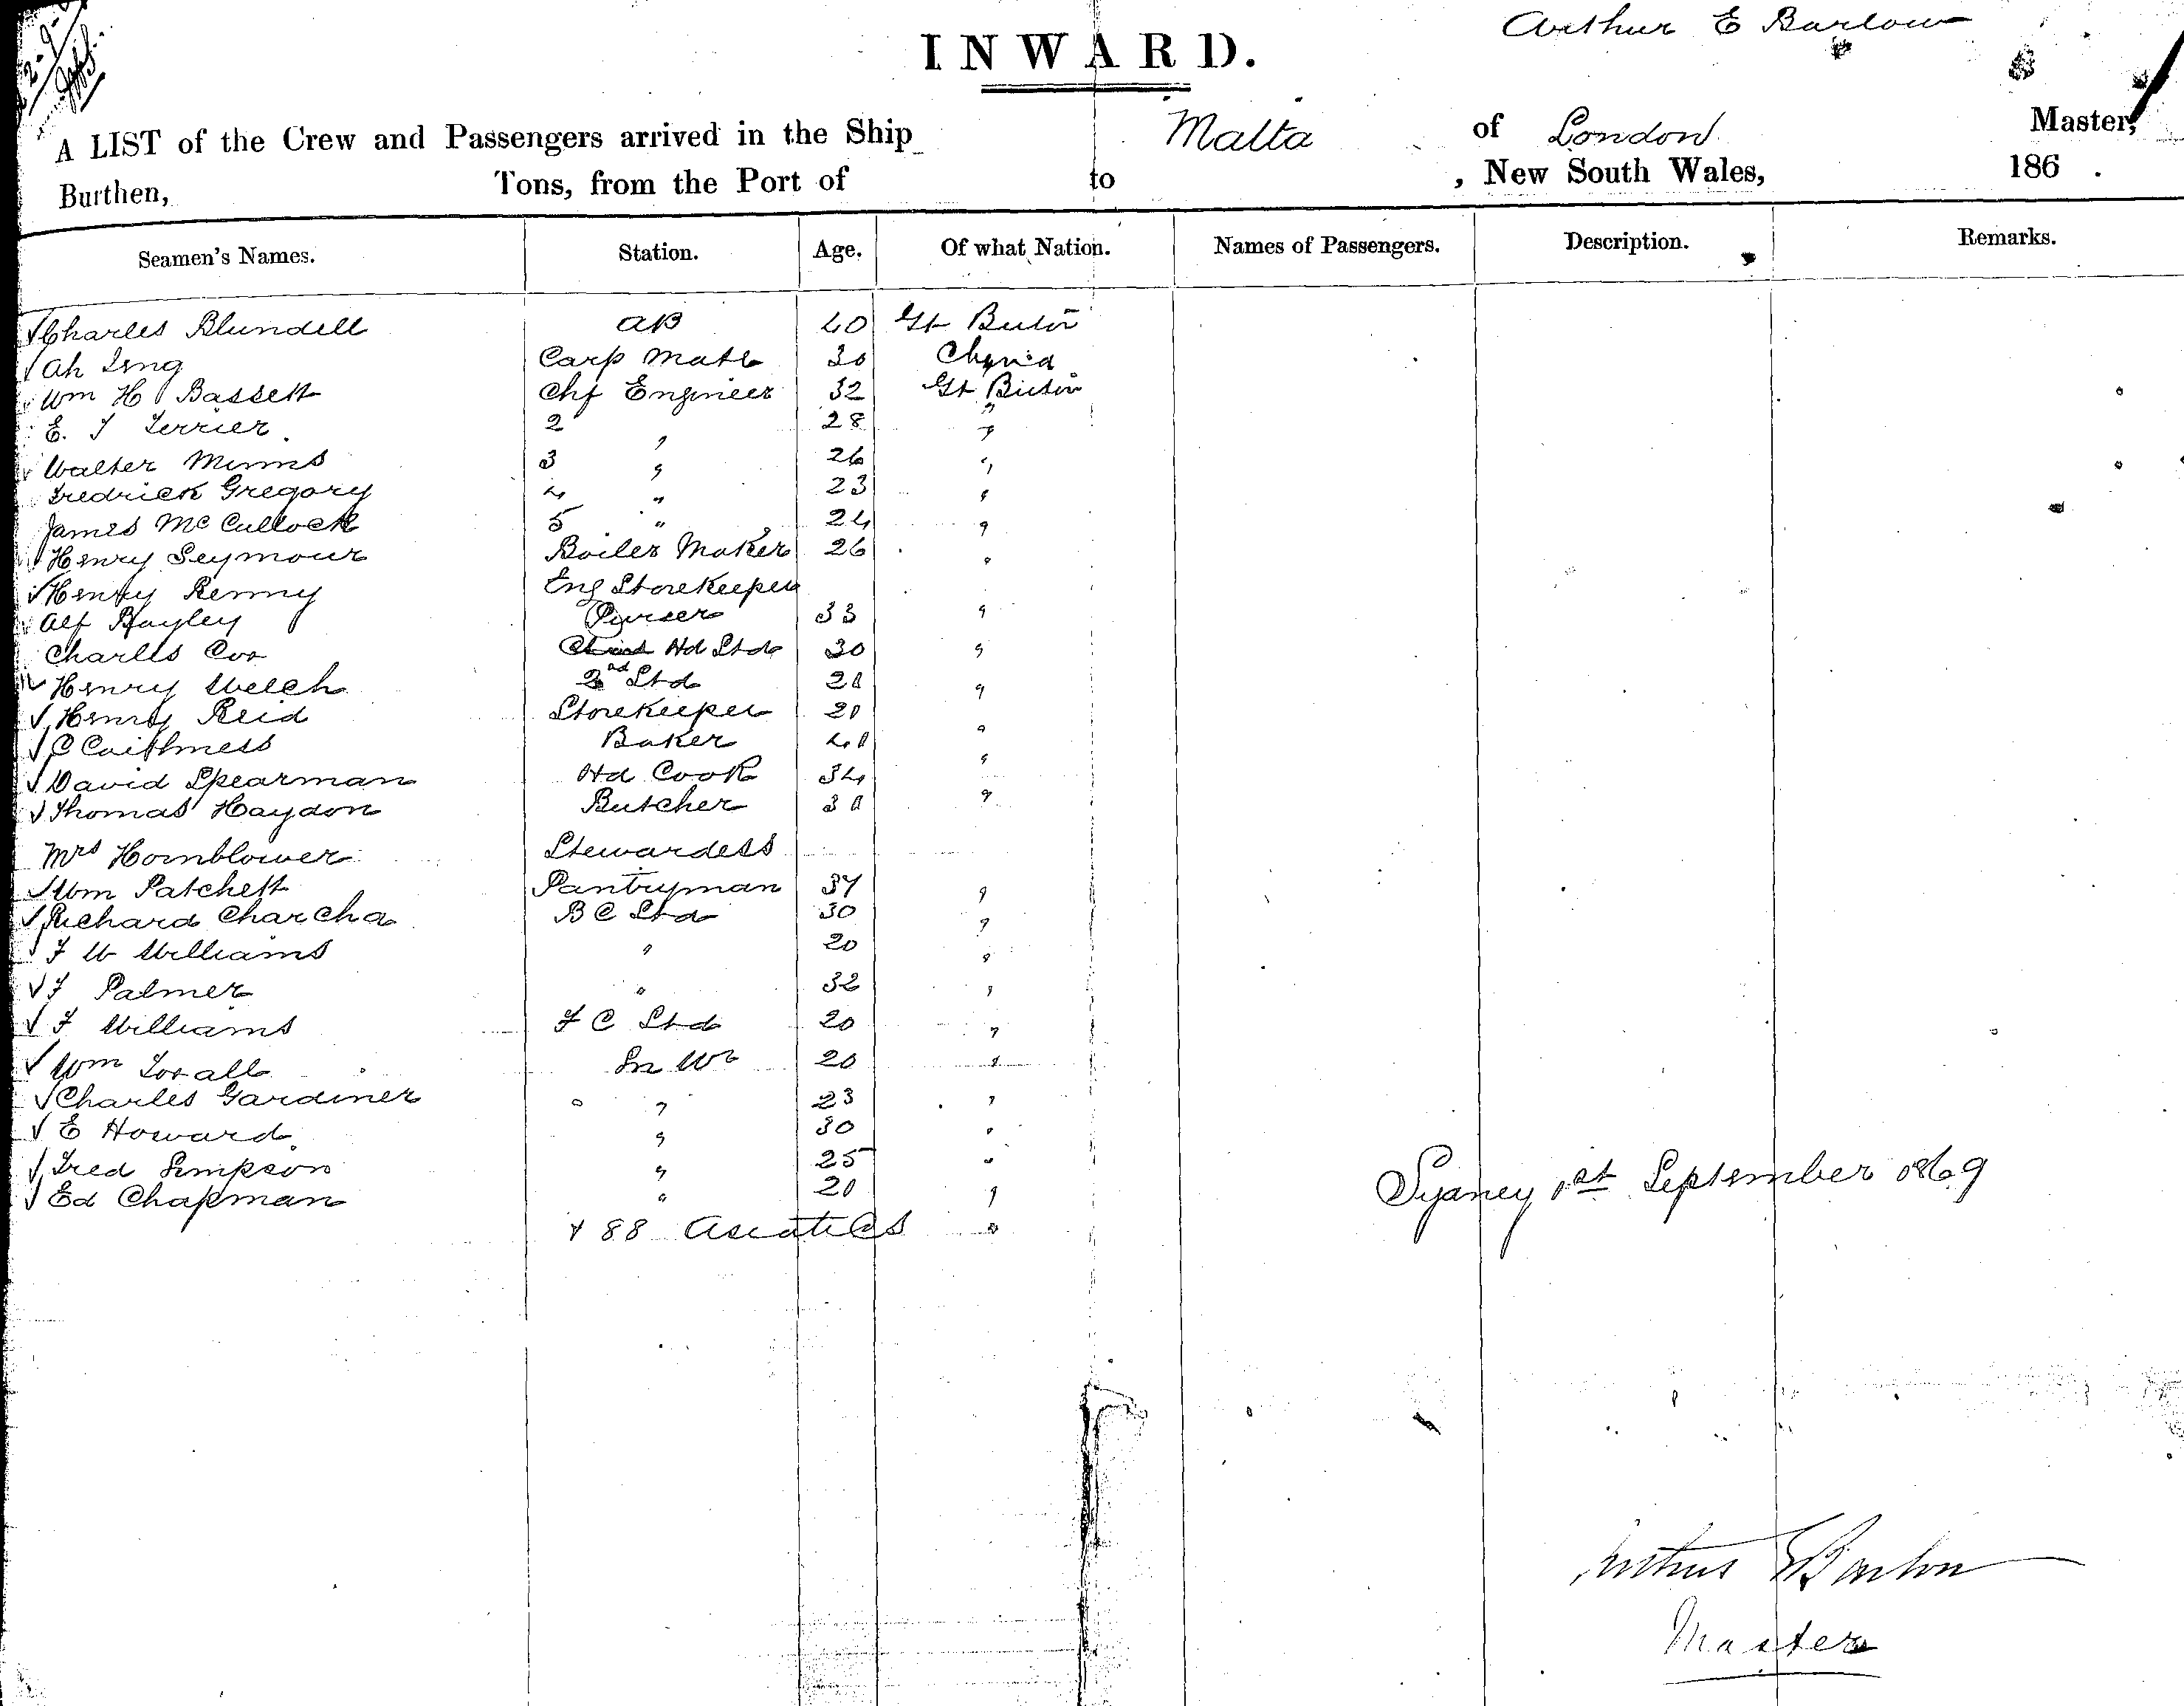 Arthur E Barlow
INWARD.
A LIST of the Crew and Passengers arrived in the Ship Malta of London Master,
Burthen, Tons, from the Port of to , New South Wales, 186 .
Seamen's Names. Station. Age. Of what Nation. Names of Passengers. Description. Remarks.
Charles Blundell AB 40 Gt Britn
Ah Chyna Carp Mate 30
Wm H Bassett Chf Engineer 32 Gt Britn
E. J Terrier 2 " 28 "
Walter Mimms 3 " 26 "
Fredrick Gregory 4 " 23 "
James Mc Cullock 5 " 24 "
Henry Seymour Boiler Maker 26 "
Henry Renny Eng Storekeeper
Alf Bayley Purser 33 "
Charles Cox Hd Std 30 "
Henry Welch 2nd Std 28 "
Henry Reid Storekeeper 20 "
C Caithness Baker 40 "
David Spearman Hd Cook 34 "
Thomas Haydon Butcher 30 "
Mrs Hornblower Stewardess
Wm Patchett Pantryman 37 "
Richard Charcha B C Std 30 "
F W Williams " 20 "
F Palmer " 32 "
F Williams F C Std 20 "
Wm Loxall Sn Wr 20 "
Charles Gardiner " 23 "
E Howard " 30 "
Fred Simpson " 25 "
Ed Chapman " 20 "
+ 88 Asiatics "
Sydney 1st September 1869
Arthur E Barlow
Master